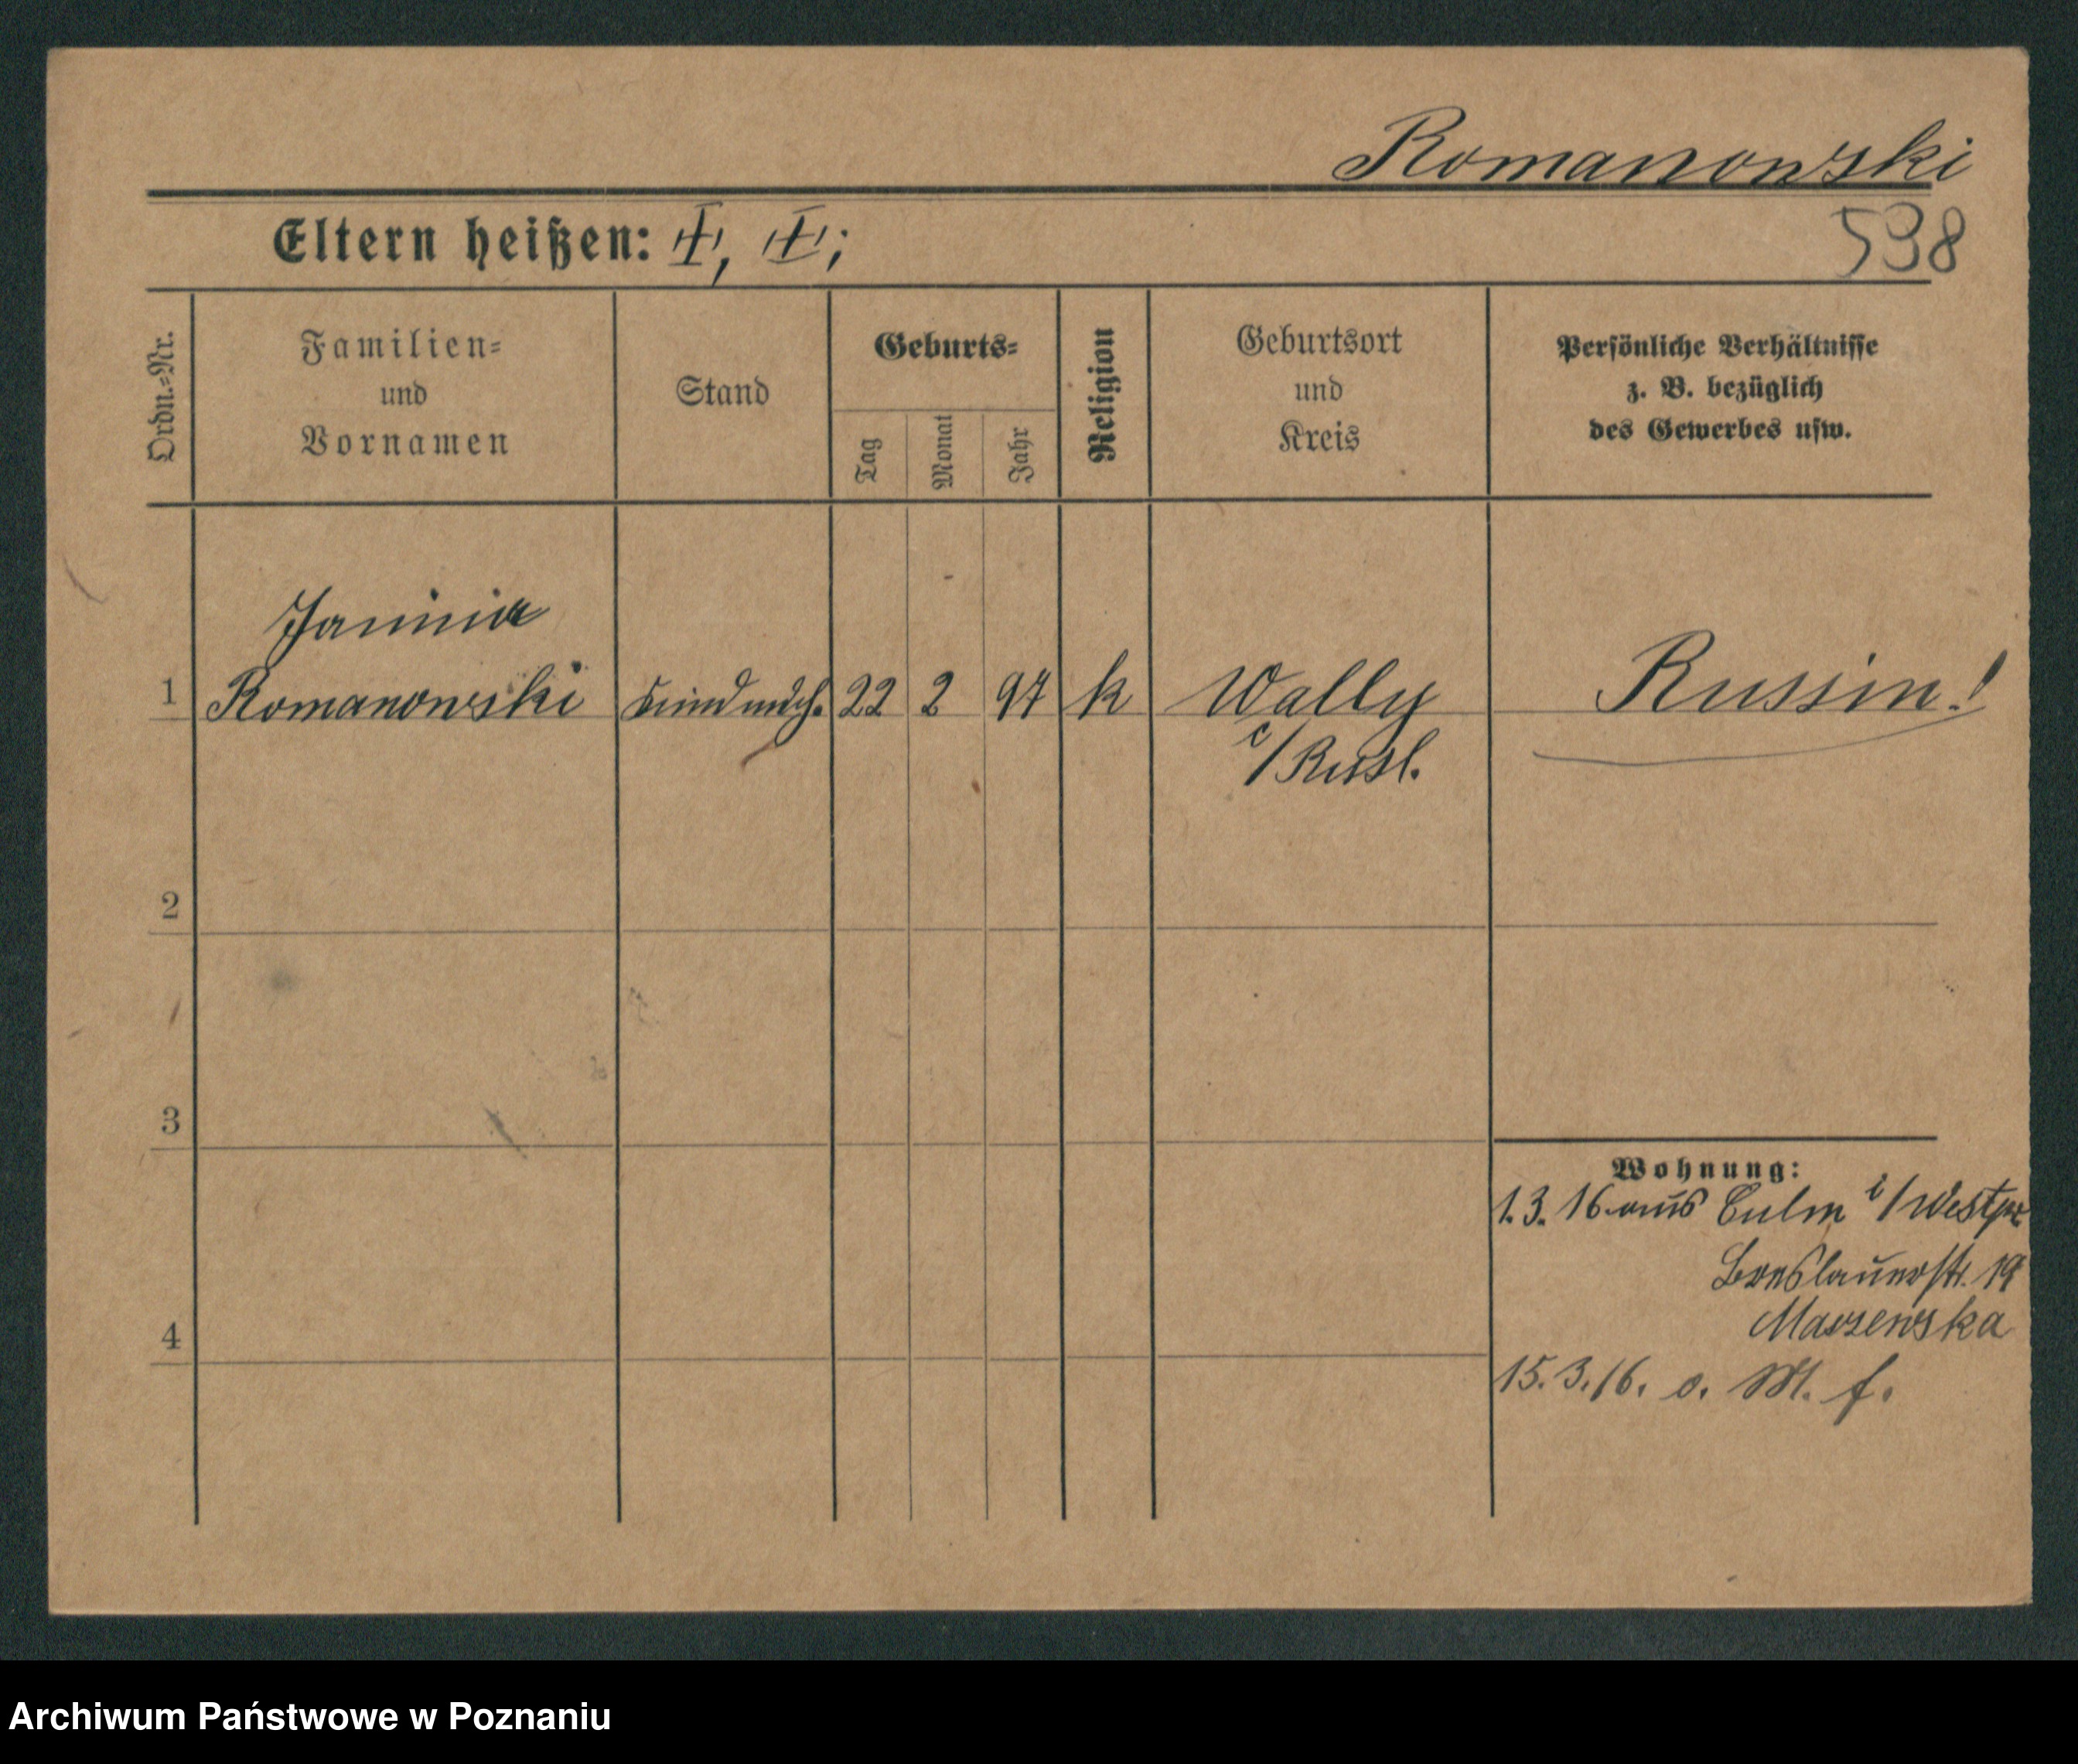 Romanowski
Eltern heißen: I, II;
538
Ordn.-Nr.
Familien-
und
Vornamen
Stand
Geburts-
Tag
Monat
Jahr
Religion
Geburtsort
und
Kreis
Persönliche Verhältnisse
z. B. bezüglich
des Gewerbes usw.
Janina
1 Romanowski 22 2 97 k Wally Russin!
i/Russl.
2
3
Wohnung:
1.3.16 aus Culm i/Westpr
Breslauerstr. 19
4
15.3.16. o. M. f.
Archiwum Państwowe w Poznaniu